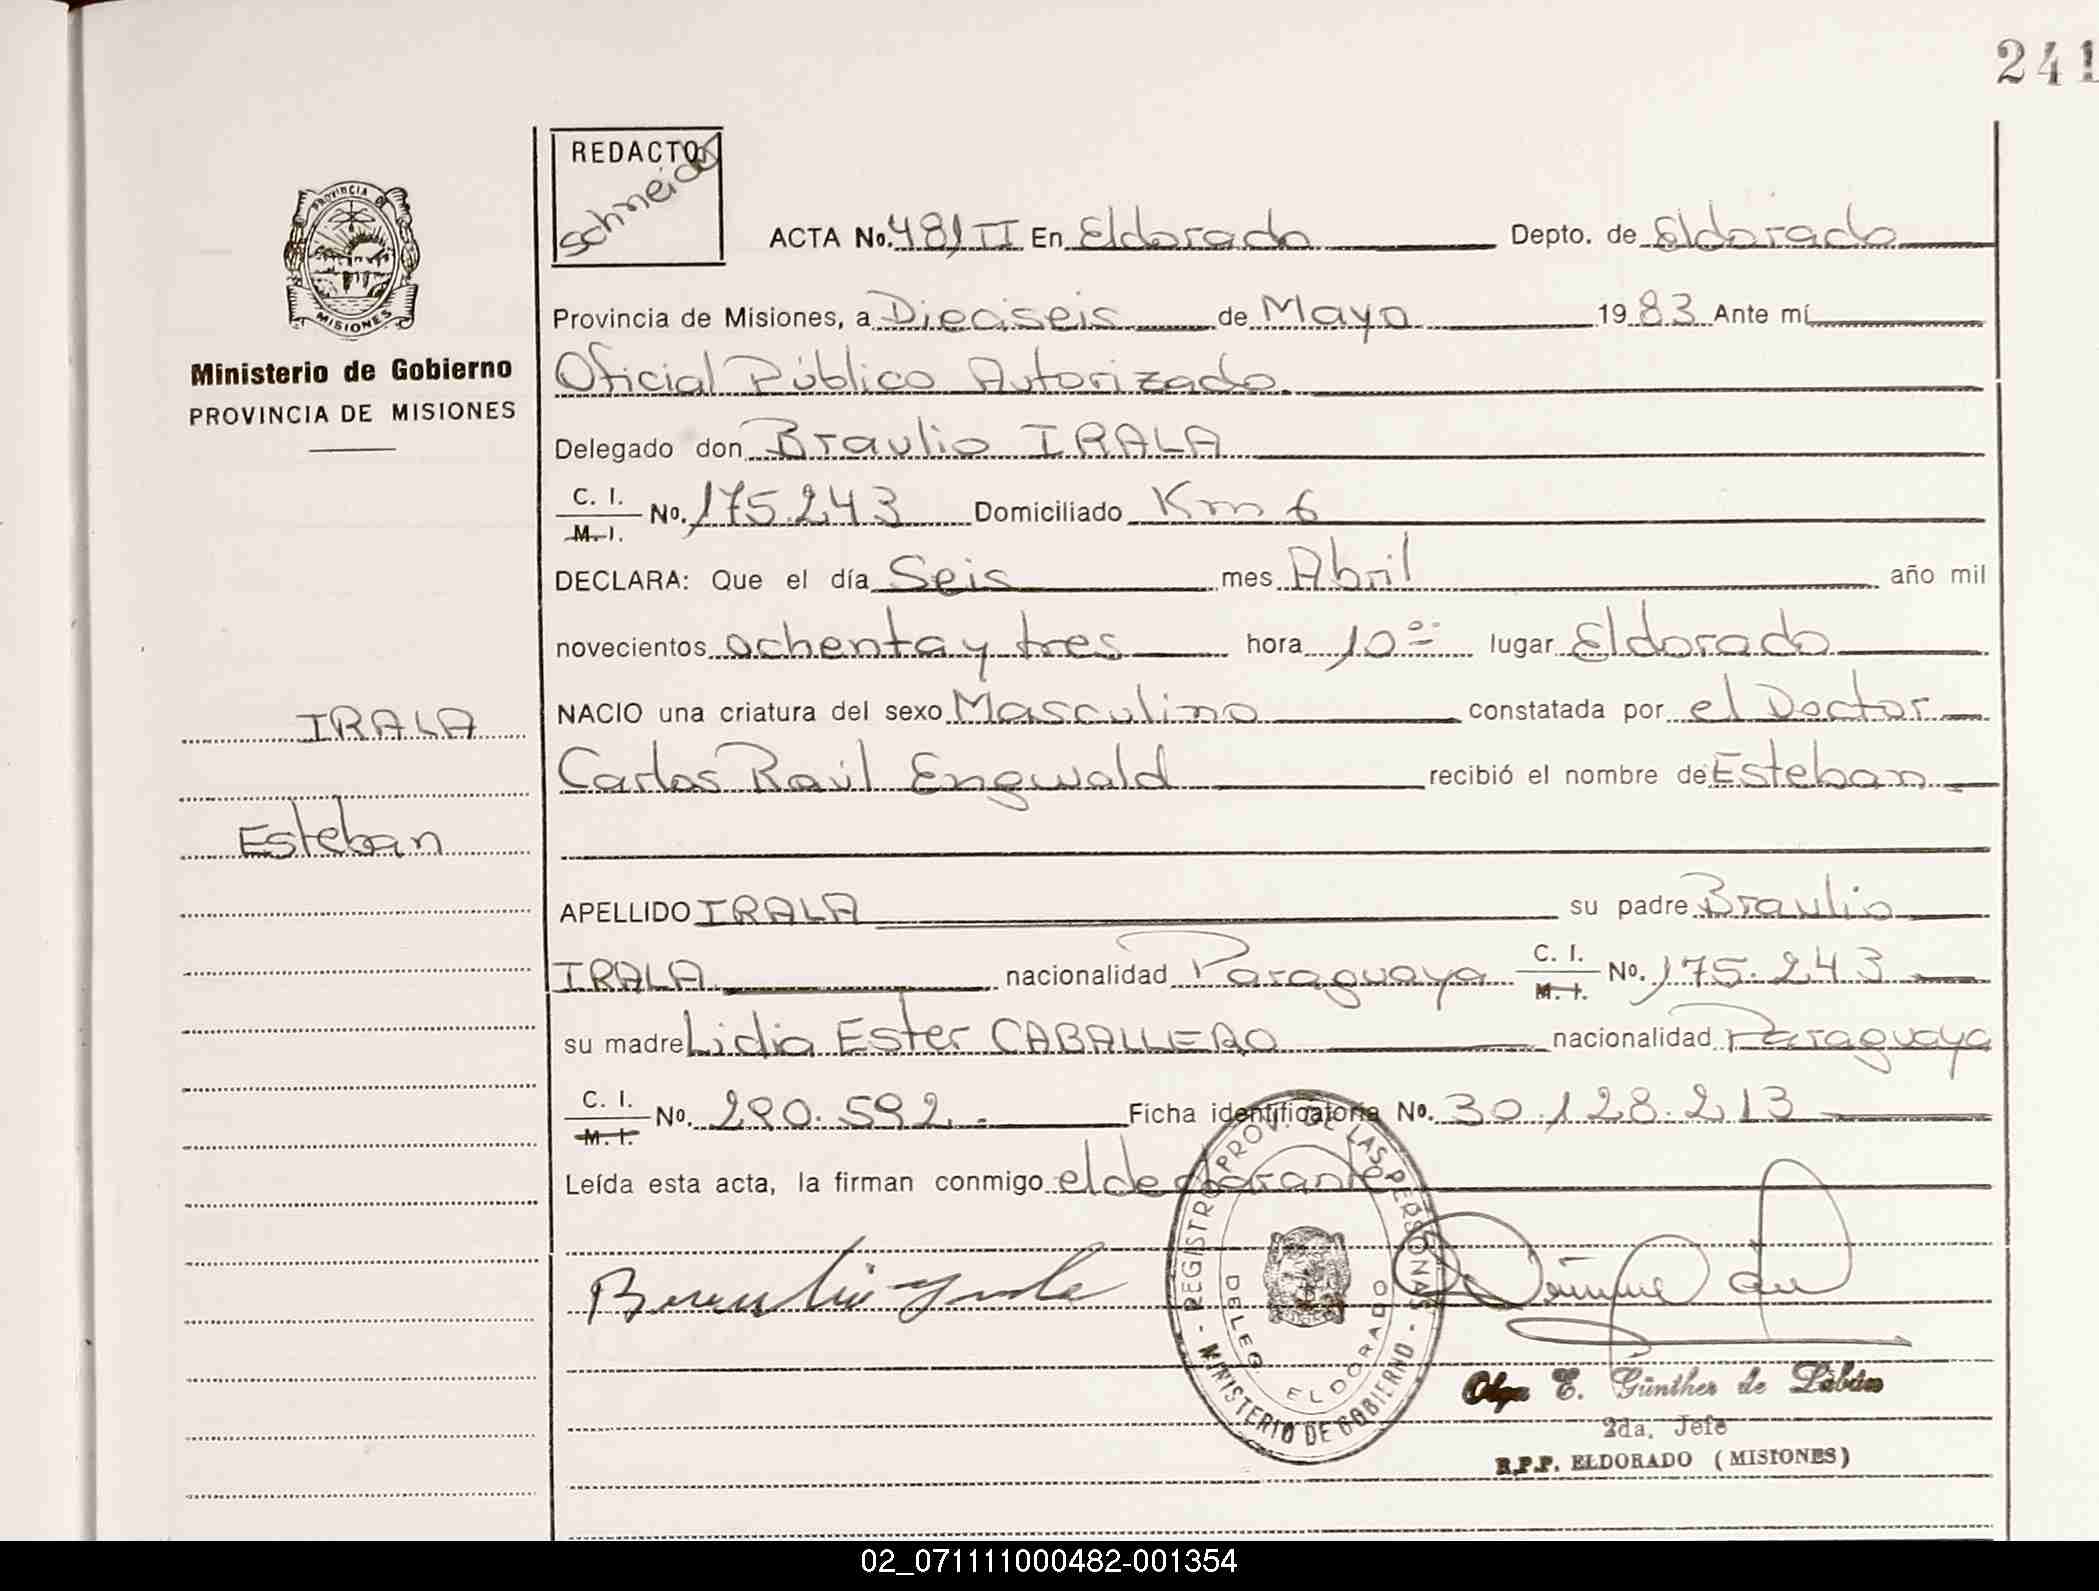 241
REDACTOR
Schneider
PROVINCIA DE
MISIONES
Ministerio de Gobierno
PROVINCIA DE MISIONES
ACTA No. 481 II En Eldorado Depto. de Eldorado
Provincia de Misiones, a Dieciseis de Mayo 1983 Ante mí
Oficial Público Autorizado
Delegado don Braulio IRALA
C. I.
M. I. No. 175.243 Domiciliado Km 6
DECLARA: Que el día Seis mes Abril año mil
novecientos ochenta y tres hora 10 oo lugar Eldorado
NACIO una criatura del sexo Masculino constatada por el Doctor
Carlos Raúl Engwald recibió el nombre de Esteban
IRALA
Esteban
APELLIDO IRALA su padre Braulio
IRALA nacionalidad Paraguaya C. I. M. I. No. 175.243
su madre Lidia Ester CABALLERO nacionalidad Paraguaya
C. I.
M. I. No. 290.592.- Ficha identificatoria No. 30.128.213
Leída esta acta, la firman conmigo el declarante
Braulio Irala
REGISTRO PROV. DE LAS PERSONAS - MINISTERIO DE GOBIERNO -
DELEG. ELDORADO
Olga E. Günther de
2da. Jefe
R.P.P. ELDORADO (MISIONES)
02_071111000482-001354